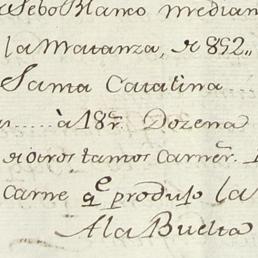 Sebo Blanco median
la Matanza, de 892,,
Santa Catalina.......
..... à 18 r. Dozena
de otros tantos carner.
carne q.e produjo la
A la Buelta